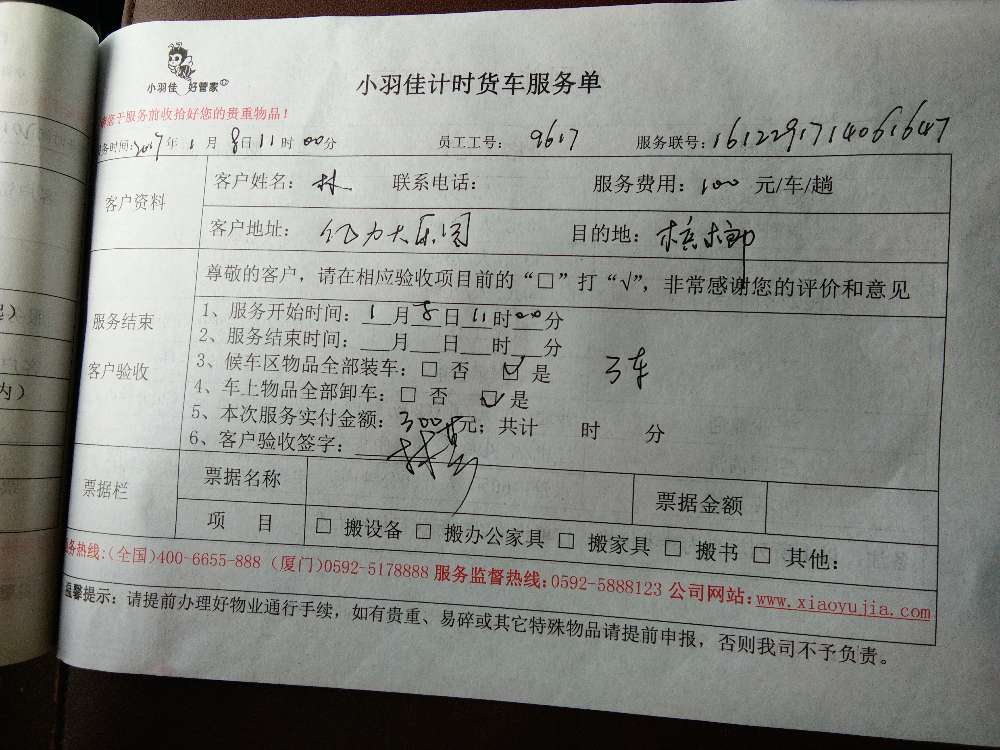 小羽佳 好管家
小羽佳计时货车服务单
于服务前收拾好您的贵重物品！
务时间：2017年1月8日11时00分 员工工号：9617 服务联号：1612291714061647
客户资料
客户姓名：林 联系电话： 服务费用：100 元/车/趟
客户地址：亿力大乐园 目的地：槟榔
服务结束
客户验收
尊敬的客户，请在相应验收项目前的“□”打“√”，非常感谢您的评价和意见
1、服务开始时间：1月8日11时00分
2、服务结束时间：___月___日___时___分
3、候车区物品全部装车：□ 否 ☑ 是 3车
4、车上物品全部卸车：□ 否 ☑ 是
5、本次服务实付金额：300元；共计 时 分
6、客户验收签字：林
票据栏
票据名称 票据金额
项 目 □ 搬设备 □ 搬办公家具 □ 搬家具 □ 搬书 □ 其他：
务热线:(全国)400-6655-888 (厦门)0592-5178888 服务监督热线:0592-5888123 公司网站:www.xiaoyujia.com
温馨提示：请提前办理好物业通行手续，如有贵重、易碎或其它特殊物品请提前申报，否则我司不予负责。